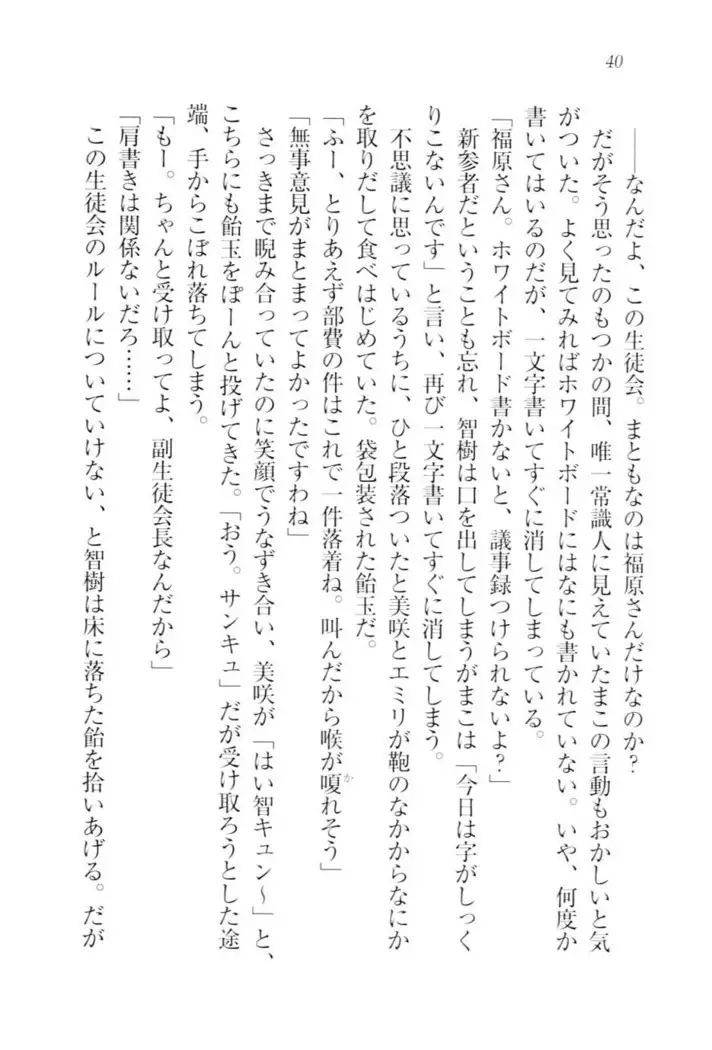 40
――なんだよ、この生徒会。まともなのは福原さんだけなのか?
だがそう思ったのもつかの間、唯一常識人に見えていたまこの言動もおかしいと気
がついた。よく見てみればホワイトボードにはなにも書かれていない。いや、何度か
書いてはいるのだが、一文字書いてすぐに消してしまっている。
「福原さん。ホワイトボード書かないと、議事録つけられないよ?」
新参者だということも忘れ、智樹は口を出してしまうがまこは「今日は字がしっく
りこないんです」と言い、再び一文字書いてすぐに消してしまう。
不思議に思っているうちに、ひと段落ついたと美咲とエミリが鞄のなかからなにか
を取りだして食べはじめていた。袋包装された飴玉だ。
「ふー、とりあえず部費の件はこれで一件落着ね。叫んだから喉が嗄れそう」
か
「無事意見がまとまってよかったですわね」
さっきまで睨み合っていたのに笑顔でうなずき合い、美咲が「はい智キュン〜」と、
こちらにも飴玉をぽーんと投げてきた。「おう。サンキュ」だが受け取ろうとした途
端、手からこぼれ落ちてしまう。
「もー。ちゃんと受け取ってよ、副生徒会長なんだから」
「肩書きは関係ないだろ……」
この生徒会のルールについていけない、と智樹は床に落ちた飴を拾いあげる。だが